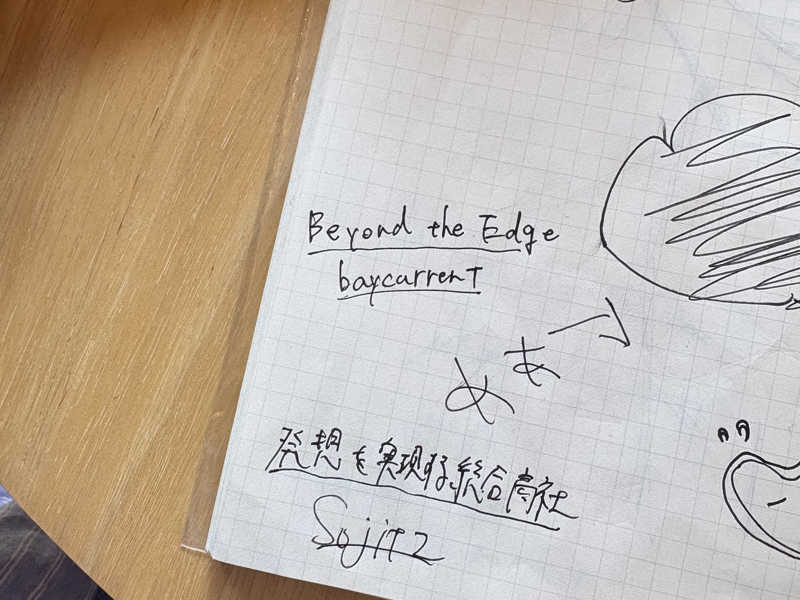 Beyond the Edge
baycurrent
めぁー
発想を実現する総合商社
Sojitz